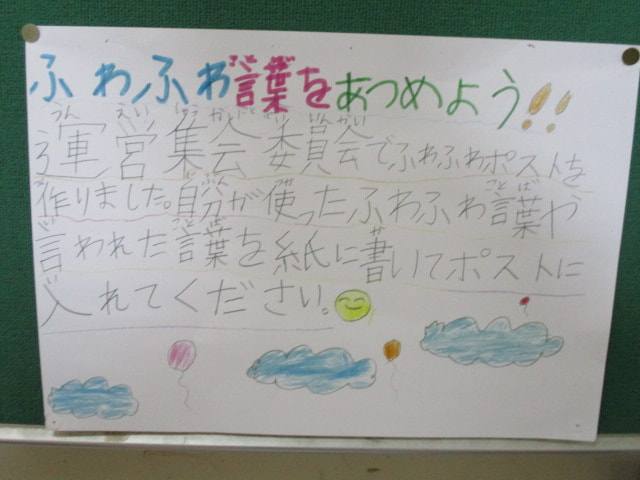 ふわふわ言葉をあつめよう!!
運営集会委員会でふわふわポストを
作りました。自分が使ったふわふわ言葉や
言われた言葉を紙に書いてポストに
入れてください。